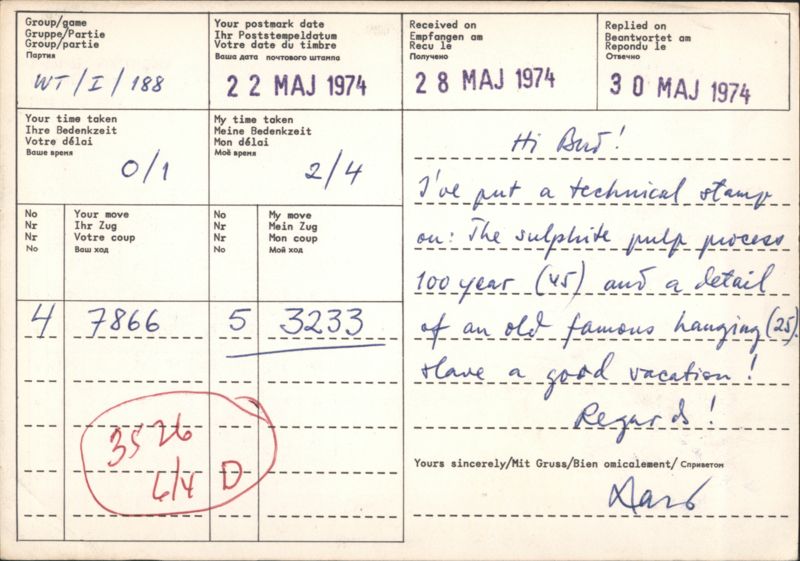 Group/game
Gruppe/Partie
Group/partie
Партия
WT/I/188
Your postmark date
Ihr Poststempeldatum
Votre date du timbre
Ваша дата почтового штампа
22 MAJ 1974
Received on
Empfangen am
Recu le
Получено
28 MAJ 1974
Replied on
Beantwortet am
Repondu le
Отвечно
30 MAJ 1974
Your time taken
Ihre Bedenkzeit
Votre délai
Ваше время
0/1
My time taken
Meine Bedenkzeit
Mon délai
Моё время
2/4
No
Nr
Nr
No
Your move
Ihr Zug
Votre coup
Ваш ход
No
Nr
Nr
No
My move
Mein Zug
Mon coup
Мой ход
4 7866 5 3233
3526
6/4 D
Hi Bud!
I've put a technical stamp
on: The sulphite pulp process
100 year (45) and a detail
of an old famous hanging (25).
Have a good vacation!
Regards!
Yours sincerely/Mit Gruss/Bien omicalement/Спричетом